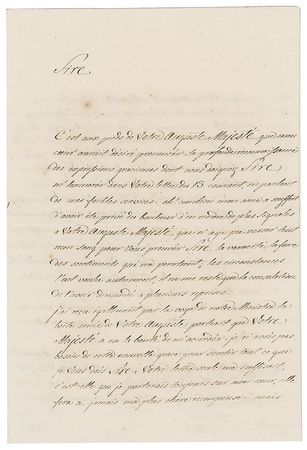 Sire
C'est aux pieds de Votre Auguste Majesté que mon
cœur aurait désiré prononcer la profonde reconnaissance
des expressions gracieuses dont vous daignez Sire
m'honorer dans Votre lettre du 13 courant en parlant
de mes faibles services. Ah! combien mon ame a souffert
d'avoir été privé du bonheur d'en rendre de plus signalés
à Votre Auguste Majesté, que n'ai-je pu verser tout
mon sang pour Vous prouver Sire, la verité, la force
des sentiments qui m'animent, les circonstances
l'ont voulu autrement, il me reste que la consolation
de l'avoir demandé a plusieurs reprises.
J'ai reçu également par la voye de notre Ministre la
boite ornée de Votre Auguste portrait que Votre
Majesté a eu la bonté de m'accorder, je n'avais pas
besoin de cette nouvelle grace pour sentir tout ce que
je Vous dois Sire, Votre lettre seule me suffisait,
c'est elle que je porterais toujours sur mon cœur, elle
sera a jamais ma plus chère recompense. mais